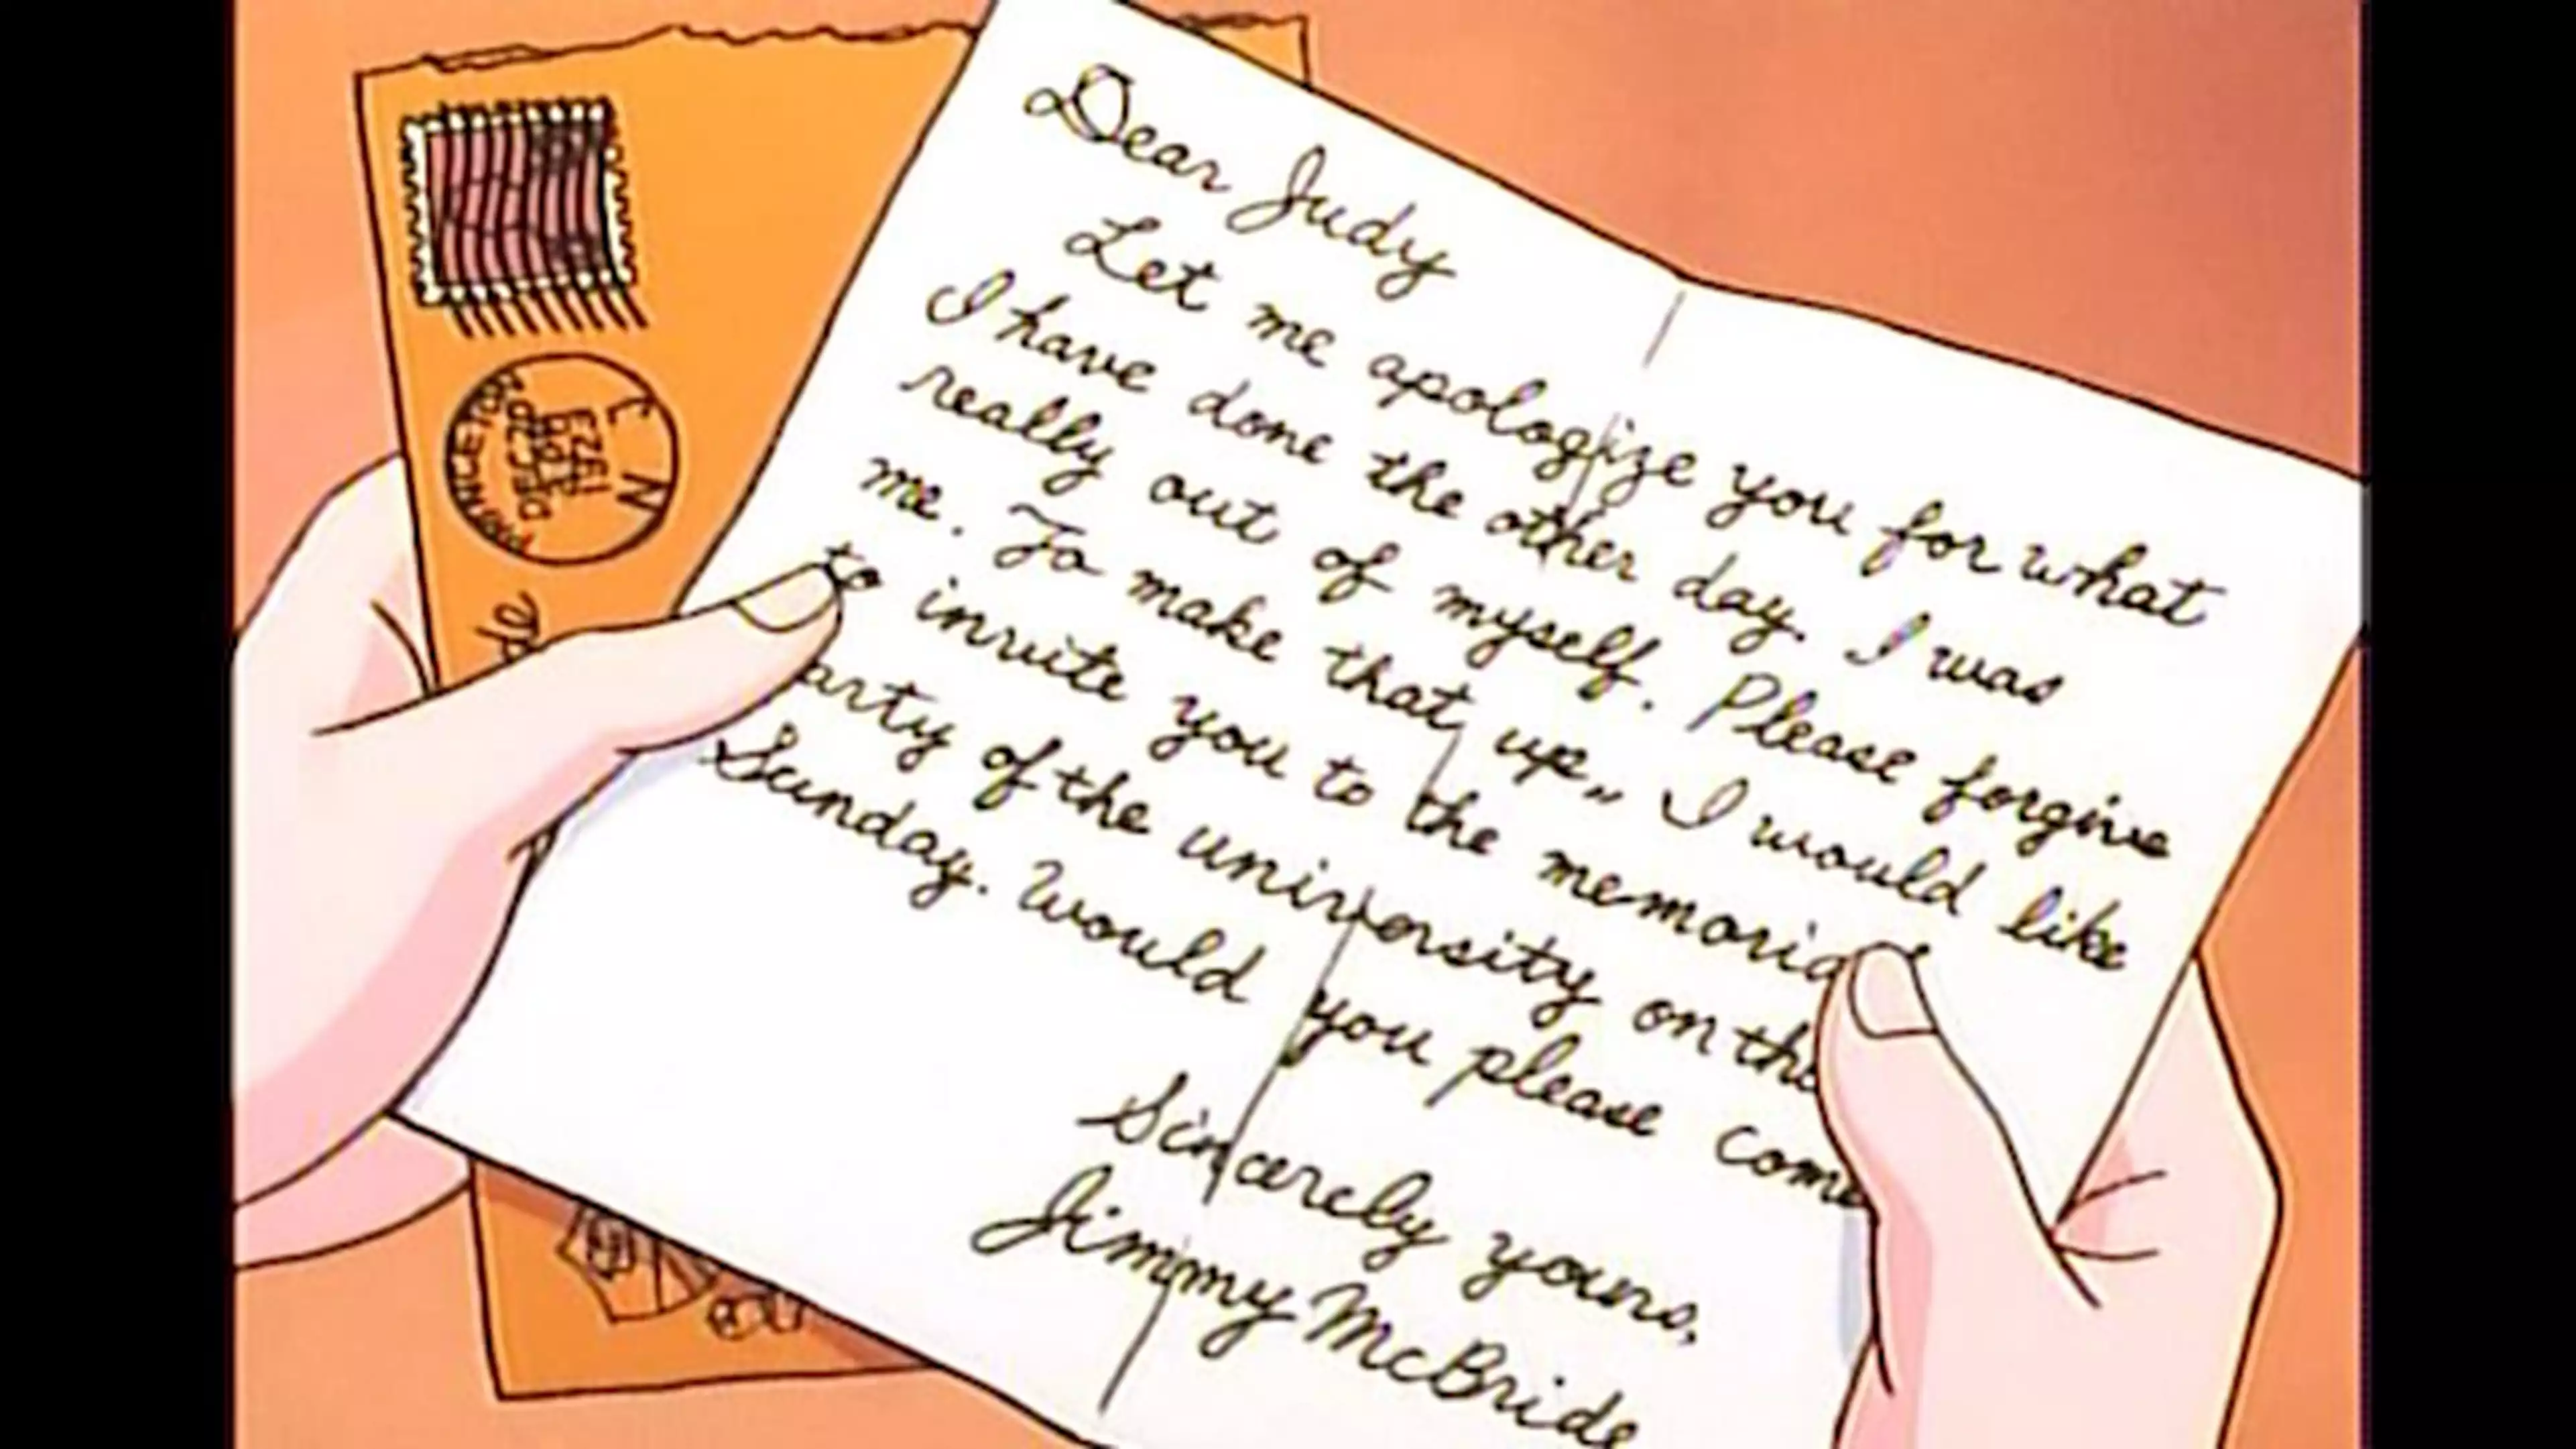 Dear Judy
Let me apologize you for what
I have done the other day. I was
really out of myself. Please forgive
me. To make that up,, I would like
to invite you to the memorial
arty of the university on the
Sunday. Would you please come
Sincerely yours,
Jimmy McBride
1923